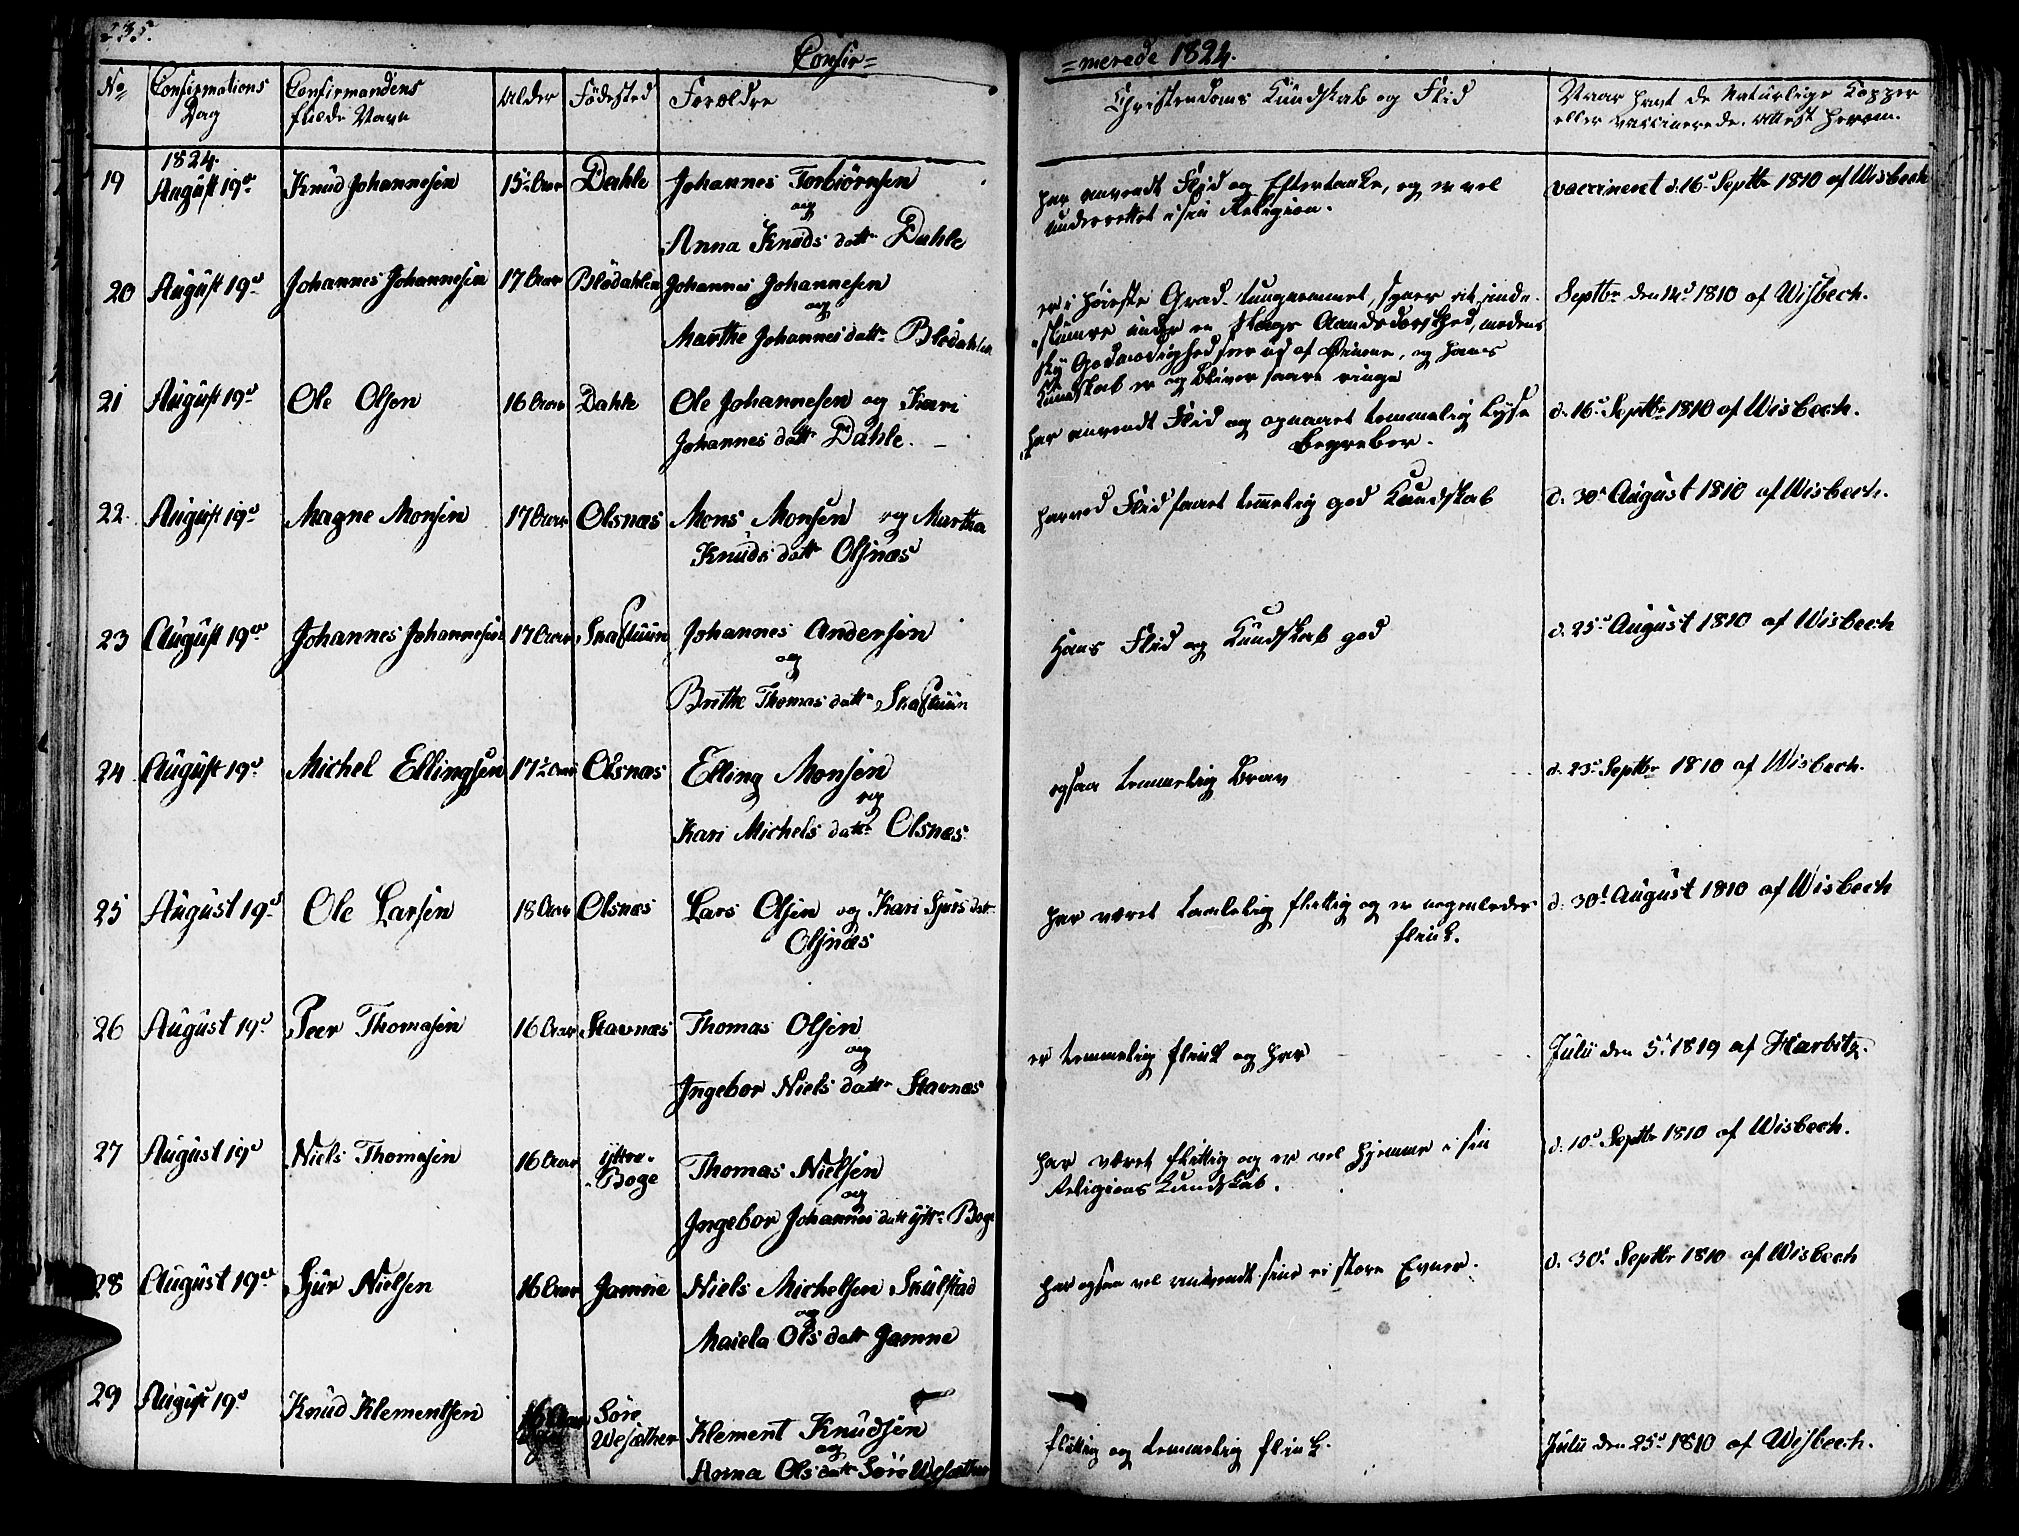 235.
Confir=
=merede 1824.
No
Confirmations Dag
Confirmandens fulde Navn
Alder
Fødested
Forældre
Christendoms Kundskab og Flid
Naar havt de Naturlige Kopper
eller vaccinerede. Attest herom.
1824.
19 August 19de Knud Johannesen 15 Aar Dahle Johannes Torbiørnsen
og
Anna Knuds datt Dahle
har anvendt Flid og Eftertanke, og er vel
underrettet i sin Religion.
vaccineret d. 16 Septbr 1810 af Wisbech
20 August 19d Johannes Johannesen 17 Aar Blødahlen Johannes Johannesen
og
Marthe Johannes datt Blødahlen
er i høieste Grad tungnemmet,
Godmodighed seer ud af Øinene, og hans
Kundskab er og bliver saare ringe
Septbr den 14d 1810 af Wisbech.
21 August 19d Ole Olsen 16 Aar Dahle Ole Johannesen og Kari
Johannes datt Dahle.
har anvendt Flid og opnaaet temmelig lyse
Begreber.
d. 16 Septbr 1810 af Wisbech.
22 August 19d Magne Monsen 17 Aar Olsnæs Mons Monsen og Martha
Knuds datt Olsnæs
har ved Flid faaet temelig god Kundskab
d. 30 August 1810 af Wisbech.
23 August 19de Johannes Johannesen 17 Aar Skaftuun Johannes Andersen
og
Brithe Thomas datt Skaftuun
Hans Flid og Kundskab god
d. 25 August 1810 af Wisbech
24 August 19d Michel Ellingsen 17½ Aar Olsnæs Elling Monsen
og
Kari Michels datt Olsnæs
ogsaa temmelig brav
d. 23 Septbr 1810 af Wisbech.
25 August 19d Ole Larsen 18 Aar Olsnæs Lars Olsen og Kari Sjurs datt
Olsnæs
har været taalelig flittig og er nogenledes
flink.
d. 30d August 1810 af Wisbech
26 August 19d Peer Thomasen 16 Aar Stavnæs Thomas Olsen
og
Ingebor Niels datt Stavnæs
er temmelig flink og har
Julii den 5 1819 af Harbitz.
27 August 19d Niels Thomasen 16 Aar ÿttre Boge Thomas Nielsen
og
Ingebor Johannes datt ÿtt Boge
har været flittig og er vel hjemme i sin
Religions Kundskab.
d. 10d Septbr 1810 af Wisbech.
28 August 19de Sjur Nielsen 16 Aar Jamne Niels Michelsen Skulstad
og
Maiela Ols datt Jamne
har ogsaa vel anvendt sine ei store Evner.
d. 30 Septbr 1810 af Wisbech
29 August 19d Knud Klementsen 16 Aar Søre Wesæther Klement Knudsen
og
Anna Ols datt Søre Wesæther
flittig og temmelig flink.
Julii den 25d 1810 af Wisbech.